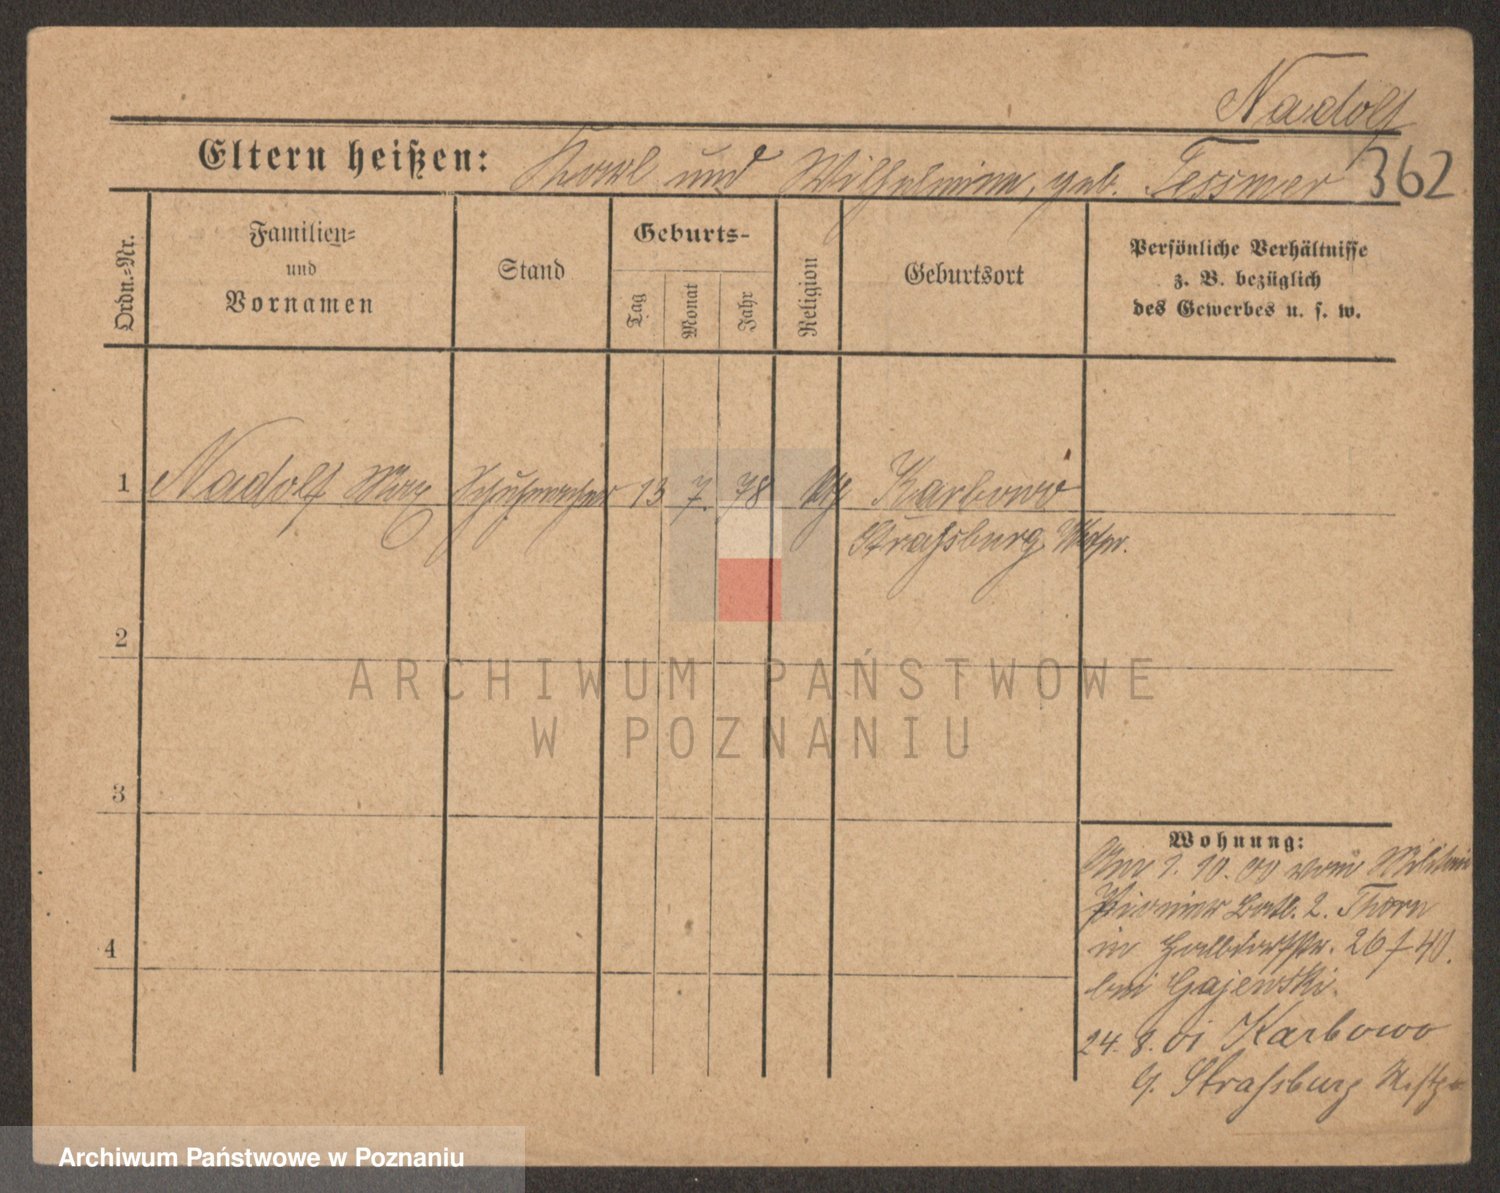 Nadolf
Eltern heißen: Karl und Wilhelmine, geb. Tessmer 362
Ordn.-Nr.
Familien-
und
Vornamen
Stand
Geburts-
Tag
Monat
Jahr
Religion
Geburtsort
Persönliche Verhältnisse
z. B. bezüglich
des Gewerbes u. s. w.
1 Nadolf Max Schuhmacher 13 7. 78 Karbowo
Straßburg Wstpr.
2
ARCHIWUM PAŃSTWOWE
W POZNANIU
3
Wohnung:
1. 10. 00 vom Militär
Pionier Batl. 2. Thorn
in Halbdorfstr. 26 f 40.
bei Gajewski.
4
24. 8. 01 Karbowo
Straßburg Wstpr
Archiwum Państwowe w Poznaniu